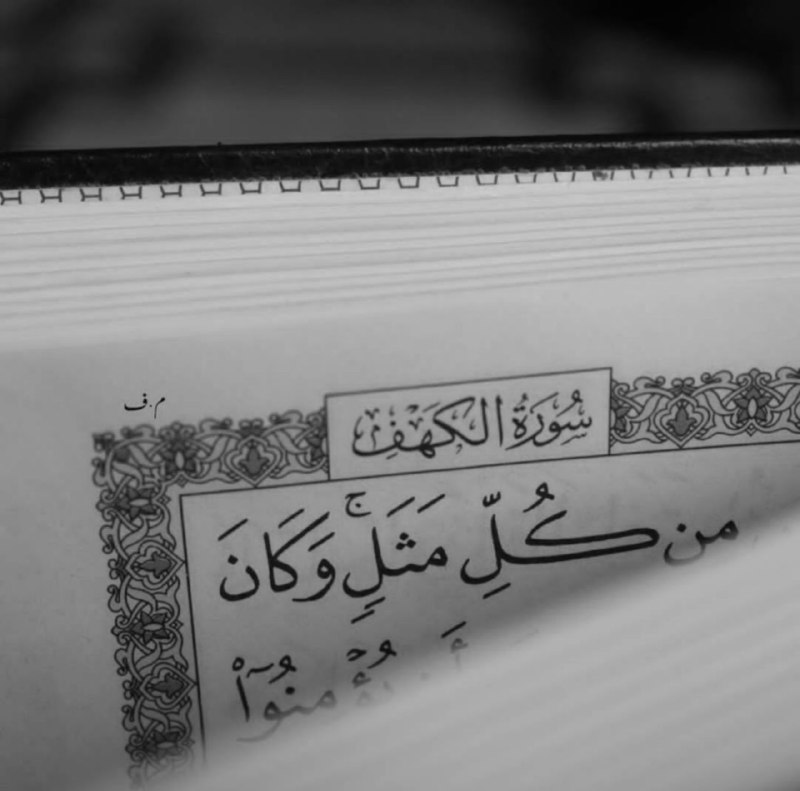 م.ف
سُورَةُ الكَهْفِ
مِن كُلِّ مَثَلٍۚ وَكَانَ
يُؤْمِنُوٓاْ